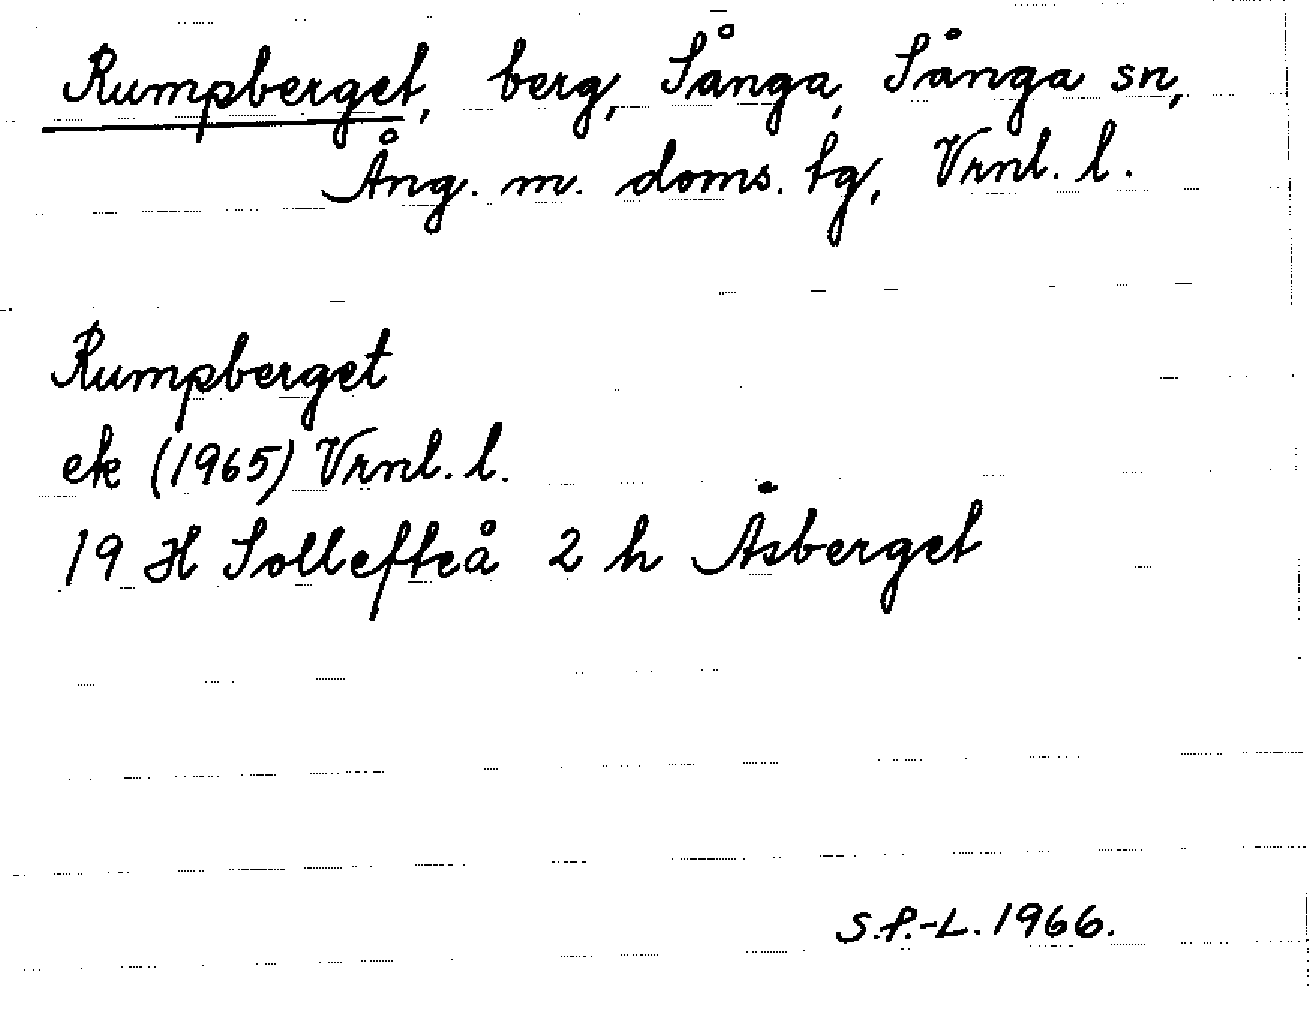 Rumpberget, berg, Sånga, Sånga sn,
Ång. m. doms. tg, Vrnl. l.
Rumpberget
ek (1965) Vrnl. l.
19 H Sollefteå 2 h Åsberget
S.P.-L. 1966.